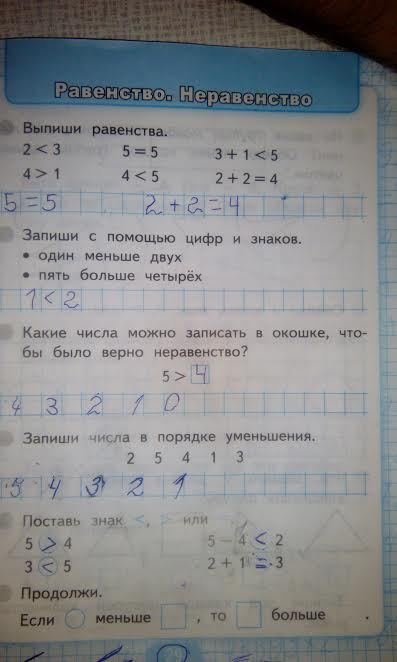 Равенство. Неравенство
Выпиши равенства.
2 < 3 5 = 5 3 + 1 < 5
4 > 1 4 < 5 2 + 2 = 4
5 = 5 2 + 2 = 4
Запиши с помощью цифр и знаков.
• один меньше двух
• пять больше четырёх
1 < 2
Какие числа можно записать в окошке, что-
бы было верно неравенство?
5 > 4
4 3 2 1 0
Запиши числа в порядке уменьшения.
2 5 4 1 3
5 4 3 2 1
Поставь знак <, > или
5 > 4 5 – 4 < 2
3 < 5 2 + 1 = 3
Продолжи.
Если меньше , то больше